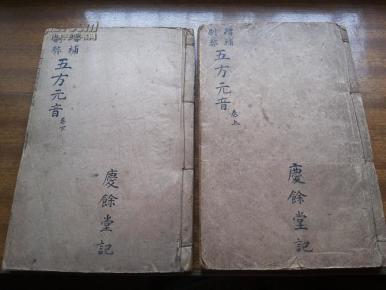 增補
剔弊
五方元音
卷上
慶餘堂記
增補
剔弊
五方元音
卷下
慶餘堂記